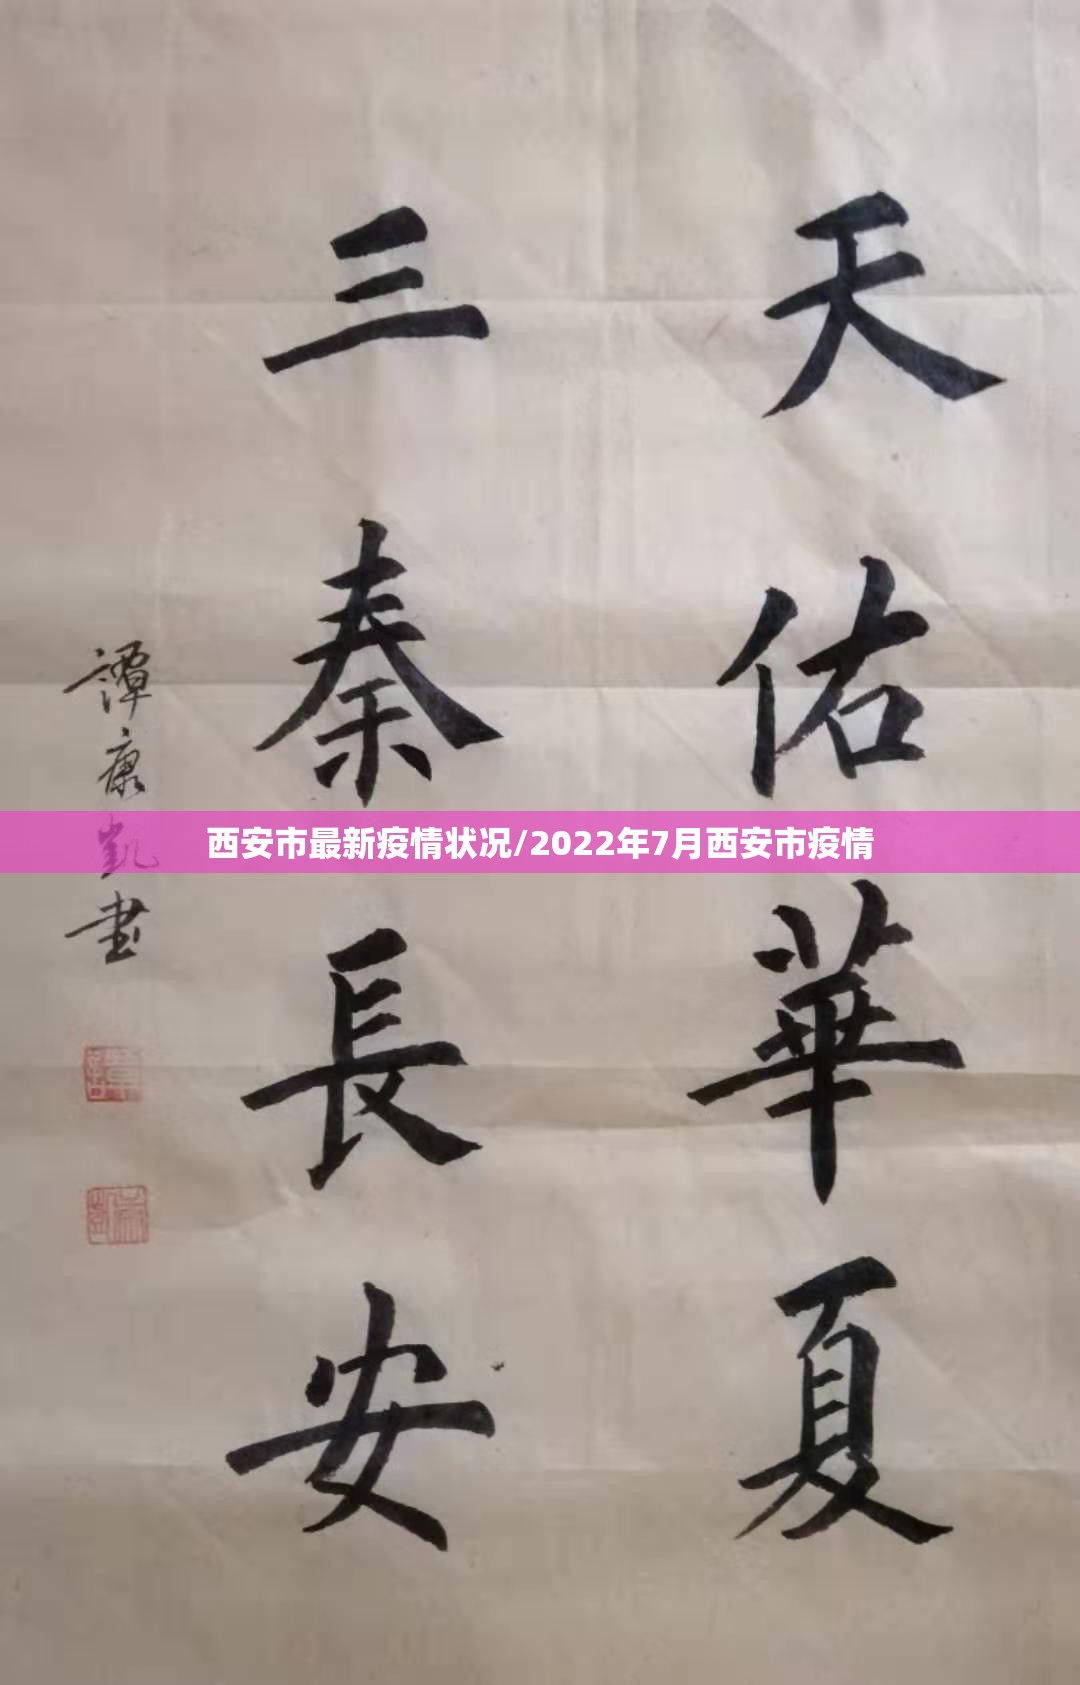 天佑華夏
三秦長安
譚康凱書
西安市最新疫情状况/2022年7月西安市疫情